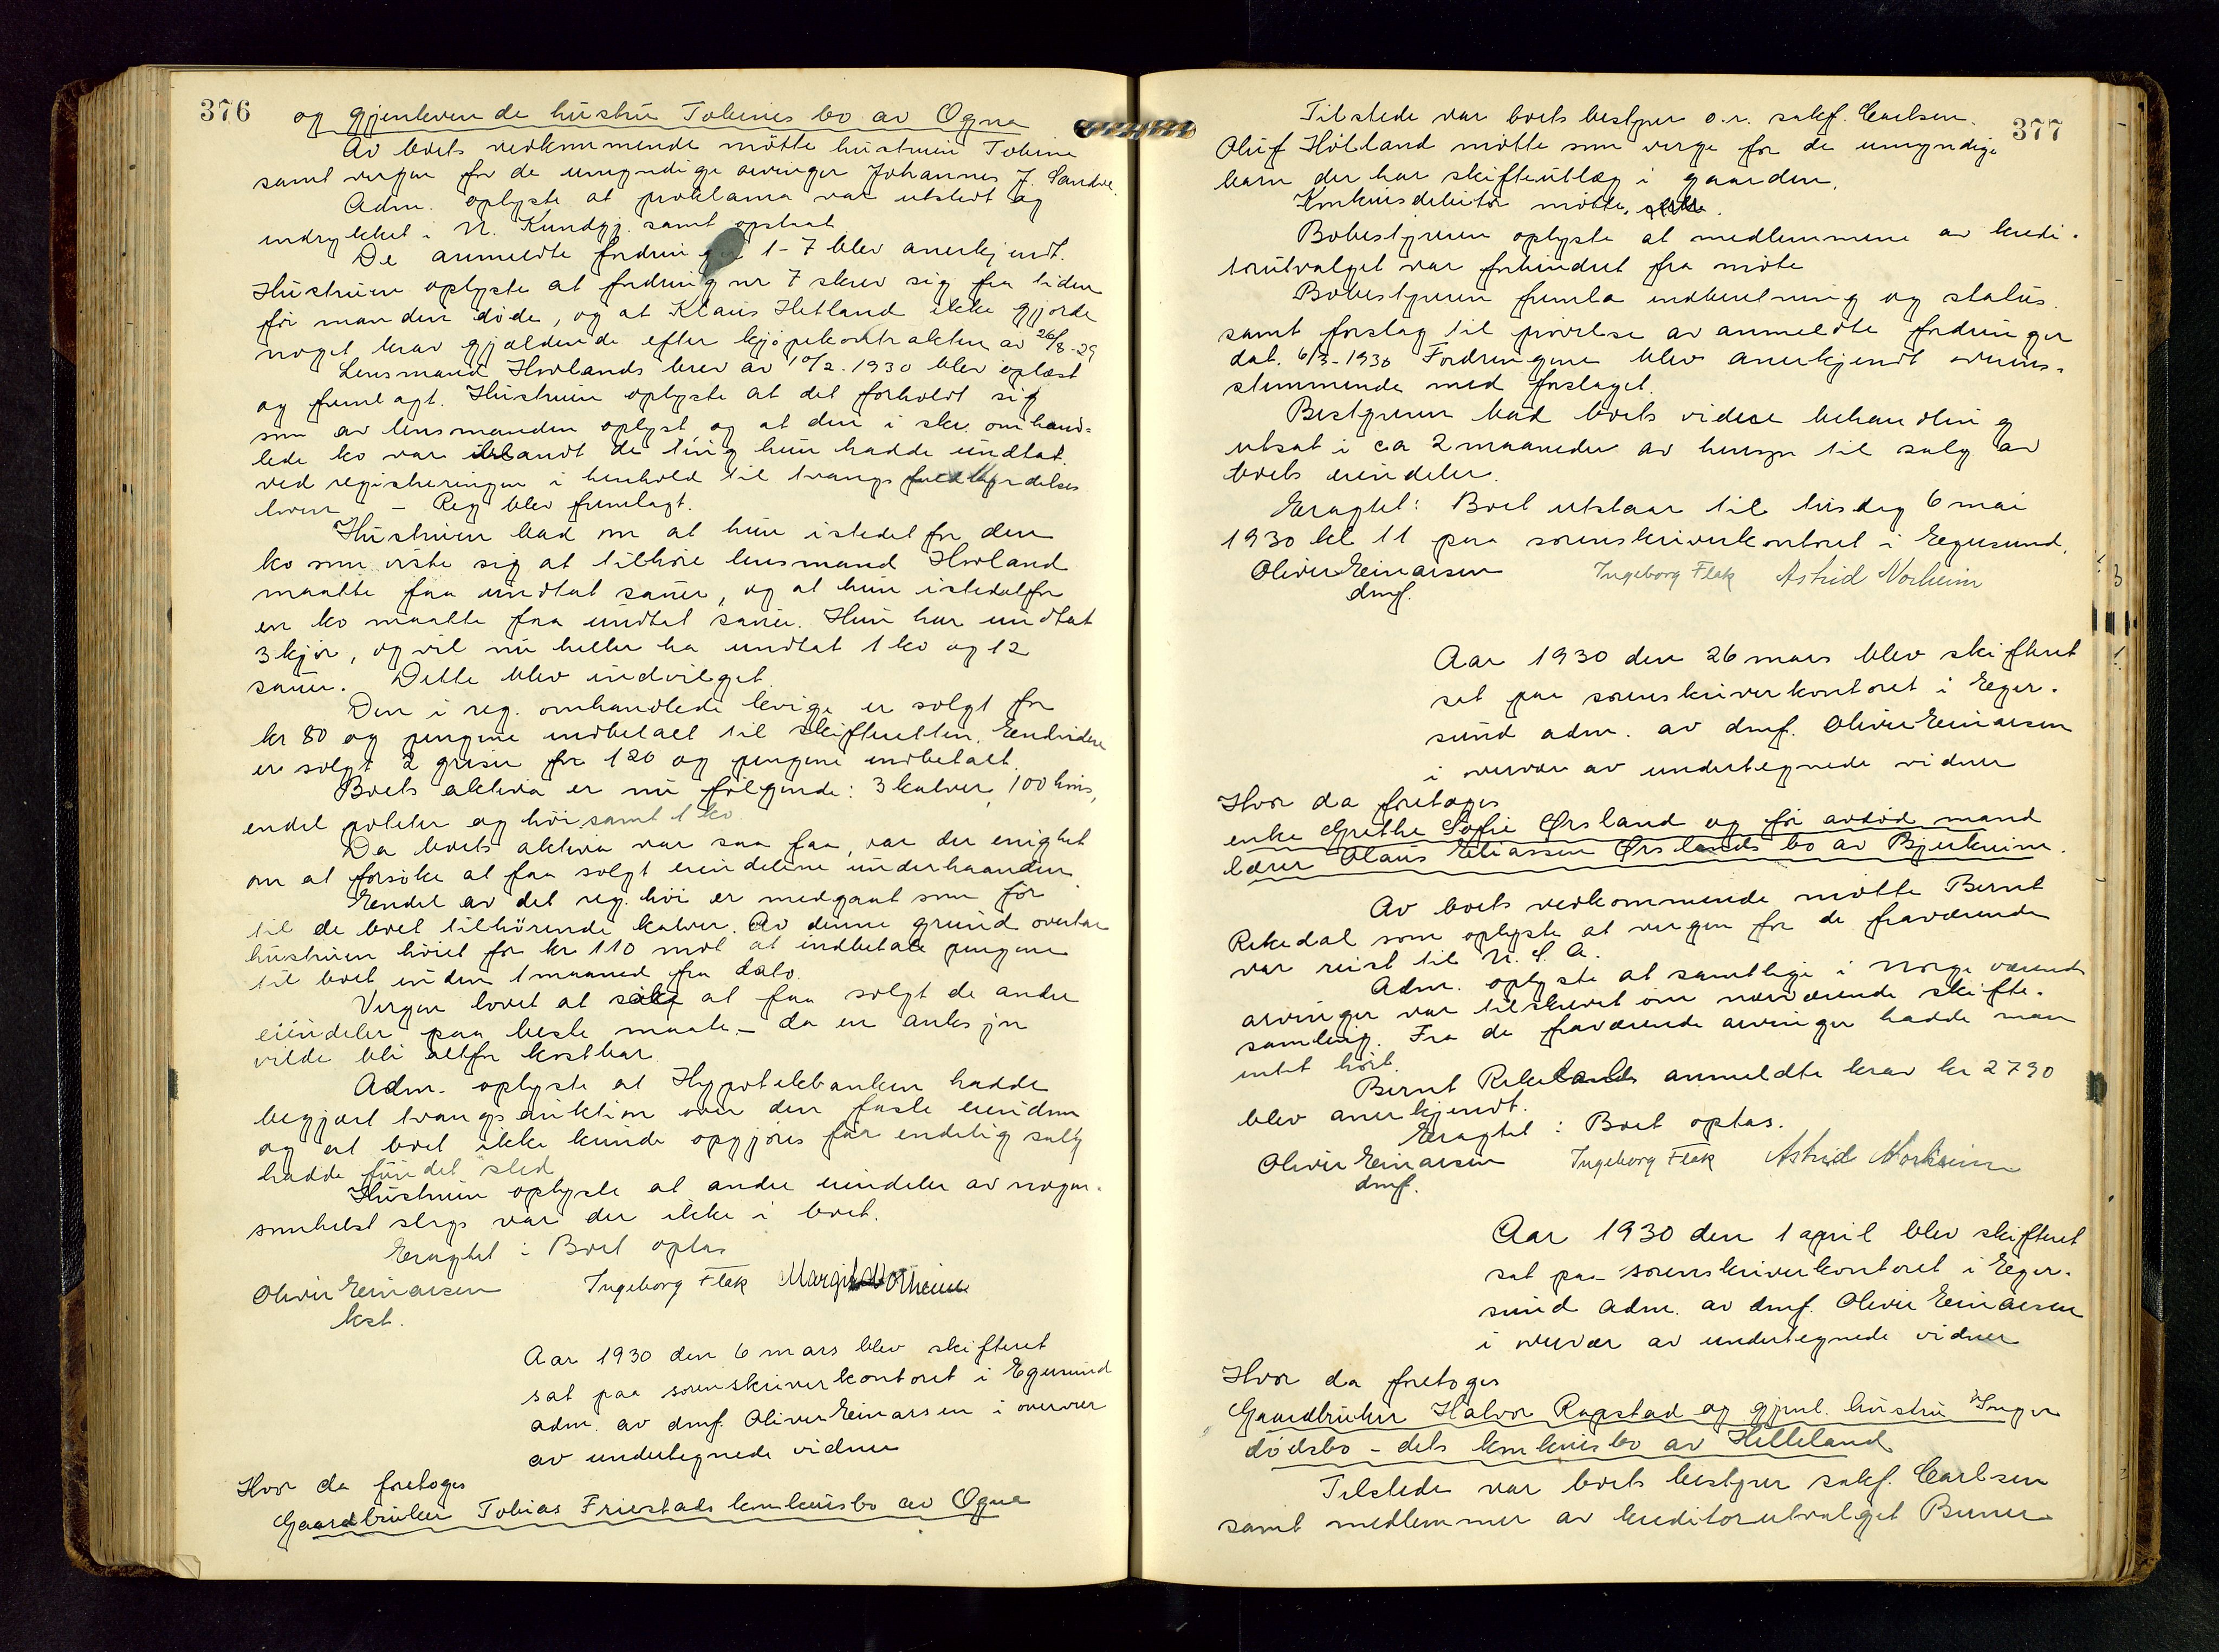 376
og gjenlevende hustru Tobines bo av Ogna
Av boets vedkommende mötte hustruen Tobine
samt vergen for de umyndige arvinger Johannes J. Sandve.
Adm. oplyste at proklama var utstedt og
indrykket i N. Kundgj. samt opslaat
De anmeldte fordringer 1-7 blev anerkjendt.
Hustruen oplyste at fordring nr 7 skrev sig fra tiden
för manden döde, og at Klaus Hetland ikke gjorde
noget krav gjældende efter kjöpekontrakten av 26/8-29
Lensmand Hovlands brev av 10/2. 1930 blev oplæst
og fremlagt. Hustruen oplyste at det forholdt sig
som av lensmanden oplyst og at den i skr. omhand-
lede ko var iblandt de ting hun hadde undtat
ved registreringen i henhold til tvangsfuldbyrdelses
loven - Reg blev fremlagt.
Hustruen bad om at hun istedet for den
ko som viste sig at tilhöre lensmand Hovland
maatte faa undtat sauer, og at hun istedetfor
en ko maatte faa undtat sauer. Hun har undtat
3 kjör, og vil nu heller ha undtat 1 ko og 12
sauer. Dette blev indvilget.
Den i reg. omhandlede kvige er solgt for
kr 80 og pengene indbetalt til skifteretten. Endvidere
er solgt 2 griser for 120 og pengene indbetalt.
Boets aktiva er nu fölgende: 3 kalver, 100 höns,
endel poteter og höi samt 1 ko.
Da boets aktiva var saa faa, var der enighet
om at forsöke at faa solgt eiendelene underhaanden
Endel av det reg. höi er medgaat som för
til de boet tilhörende kalver. Av denne grund overtar
hustruen höiet for kr 110 mot at indbetale pengene
til boet inden 1 maaned fra dato.
Vergen lovet at söke at faa solgt de andre
eiendeler paa beste maate - da en auksjon
vilde bli altfor kostbar.
Adm. oplyste at Hypotekbanken hadde
begjært tvangsauktion over den faste eiendom
og at boet ikke kunde opgjöres för endelig salg
hadde fundet sted
Hustruen oplyste at andre eiendeler av nogen-
somhelst slags var der ikke i boet.
Eragtet: Boet optas
Oliver Einarsen Ingeborg Flek Margit Norheim
kst.
Aar 1930 den 6 mars blev skifteret
sat paa sorenskriverkontoret i Egersund
adm. av dmf. Oliver Einarsen i overvær
av undertegnede vidner
Hvor da foretoges
Gaardbruker Tobias Friestads konkursbo av Ogna
377
Tilstede var boets bestyrer o.r. sakf. Carlsen.
Oluf Hölland mötte som verge for de umyndige
barn der har skifteutlæg i gaarden.
Konkursdebitor mötte.
Bobestyreren oplyste at medlemmene av kredi-
torutvalget var forhindret fra möte
Bobestyreren fremla indberetning og status
samt forslag til prövelse av anmeldte fordringer
dat. 6/3-1930 Fordringene blev anerkjendt overens-
stemmende med forslaget.
Bestyreren bad boets videre behandling
utsat i ca 2 maaneder av hensyn til salg av
boets eiendeler.
Eragtet: Boet utstaar til tirsdag 6 mai
1930 kl 11 paa sorenskriverkontoret i Egersund.
Oliver Einarsen Ingeborg Flek Astrid Norheim
dmf.
Aar 1930 den 26 mars blev skifteret
sat paa sorenskriverkontoret i Eger-
sund adm. av dmf. Oliver Einarsen
i overvær av undertegnede vidner
Hvor da foretoges
enke Grethe Sofie Örsland og för avdöd mand
lærer Olaus Eliassen Örslands bo av Bjerkreim.
Av boets vedkommende mötte Bernt
Rekedal som oplyste at vergen for de fraværende
var reist til U. S. A.
Adm. oplyste at samtlige i Norge værende
arvinger var tilskrevet om nærværende skifte-
samling. Fra de fraværende arvinger hadde man
intet hört.
Bernt Rekedals anmeldte krav kr 2790
blev anerkjendt.
Eragtet: Boet optas.
Oliver Einarsen Ingeborg Flek Astrid Norheim
dmf.
Aar 1930 den 1 april blev skifteret
sat paa sorenskriverkontoret i Eger-
sund adm. av dmf. Oliver Einarsen
i overvær av undertegnede vidner
Hvor da foretoges
Gaardbruker Halvor Ragstad og gjenl. hustru Inger
dödsbo - dets konkursbo av Helleland
Tilstede var boets bestyrer sakf. Carlsen
samt medlemmer av kreditorutvalget